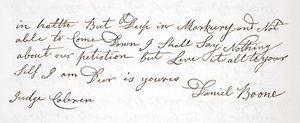 in hatth But Deep in Markury and Not
able to Come Down I Shall Say Nothing
about our petistion but Love it all to your
Self I am Deer Sir youres
Daniel Boone
Judge Cobren